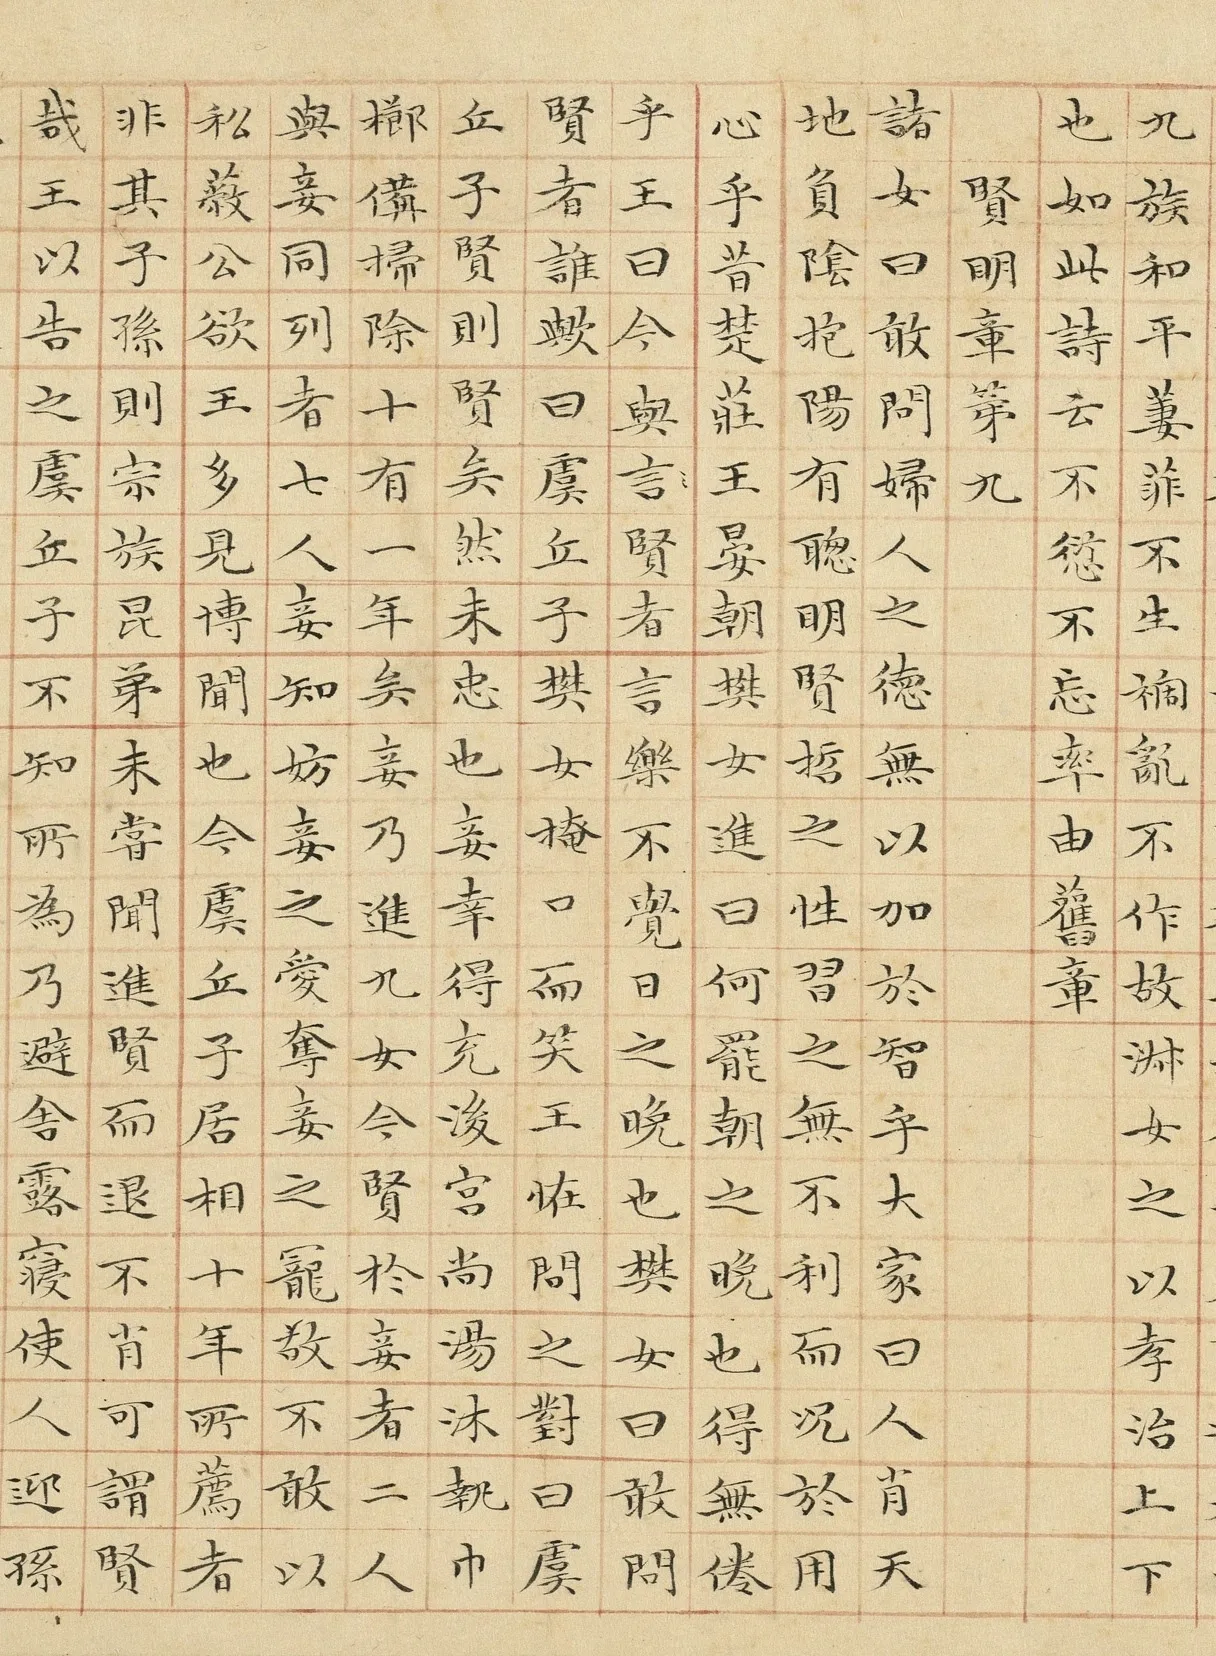 九族和平萋菲不生禍亂不作故淋女之以孝治上下
也如此詩云不愆不忘率由舊章
賢明章第九
諸女曰敢問婦人之德無以加於智乎大家曰人肖天
地負陰抱陽有聰明賢哲之性習之無不利而況於用
心乎昔楚莊王晏朝樊女進曰何罷朝之晚也得無倦
乎王曰今與言賢者言樂不覺日之晚也樊女曰敢問
賢者誰歟曰虞丘子樊女掩口而笑王恠問之對曰虞
丘子賢則賢矣然未忠也妾幸得充後宮尚湯沐執巾
櫛備掃除十有一年矣妾乃進九女今賢於妾者二人
與妾同列者七人妾知妨妾之愛奪妾之寵敢不敢以
私蔽公欲王多見博聞也今虞丘子居相十年所薦者
非其子孫則宗族昆弟未嘗聞進賢而退不肖可謂賢
哉王以告之虞丘子不知所為乃避舍露寢使人迎孫